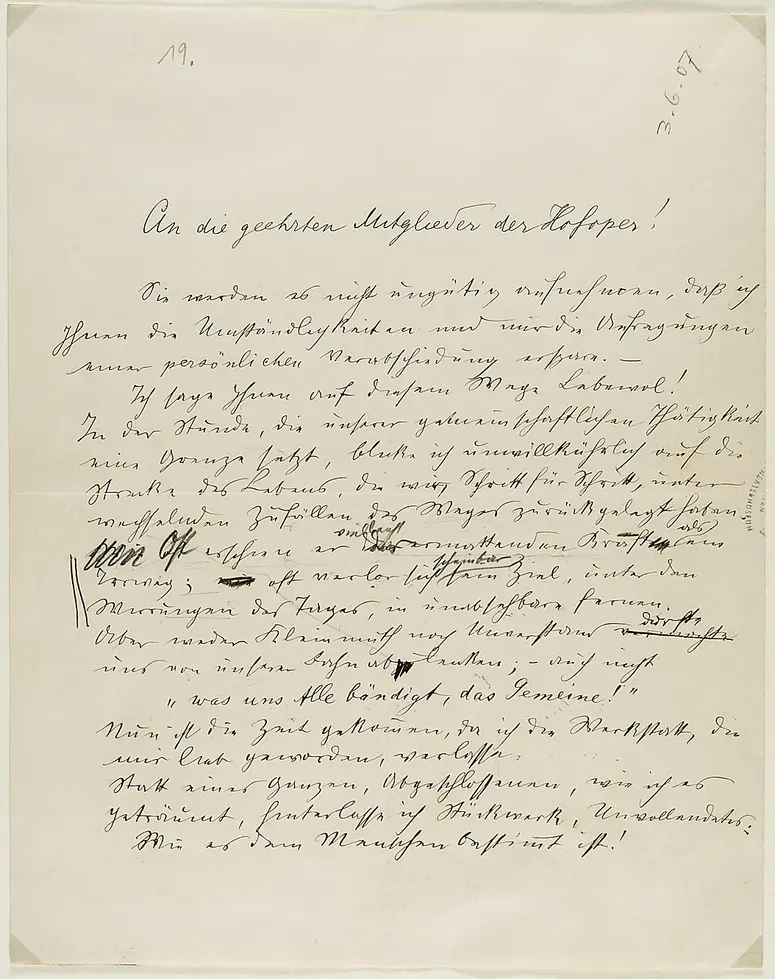 19.
3.6.07
An die geehrten Mitglieder der Hofoper!
Sie werden es nicht ungütig aufnehmen, daß ich
Ihnen die Umständlichkeiten und mir die Aufregungen
einer persönlichen Verabschiedung erspare. —
Ich sage Ihnen auf diesem Wege Lebewol!
In der Stunde, die unserer gemeinschaftlichen Thätigkeit
eine Grenze setzt, blicke ich unwillkührlich auf die
Strecke des Lebens, die wir, Schritt für Schritt, unter
wechselnden Zufällen des Weges zurückgelegt haben.
vielleicht als
Oft erschien er ermattenden Kräften ein
scheinbar
Irrweg; oft verlor sich sein Ziel, unter den
Wirrungen des Tages, in unabsehbare Fernen.
durfte
Aber weder Kleinmuth noch Unverstand vermochte
uns von unserer Bahn abzulenken; – auch nicht
„was uns Alle bändigt, das Gemeine!"
Nun ist die Zeit gekommen, da ich die Werkstatt, die
mir lieb geworden, verlasse.
Statt eines Ganzen, Abgeschlossenen, wie ich es
geträumt, hinterlasse ich Stückwerk, Unvollendetes:
Wie es dem Menschen bestimmt ist!